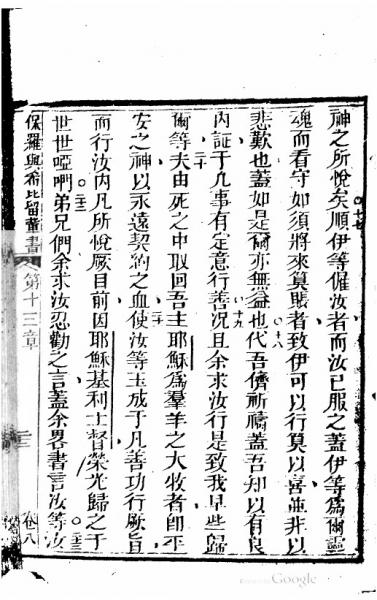 神之所悅矣順伊等催汝者而汝已服之蓋伊等為爾靈
魂而看守如須將來算賬者致伊可以行莫以喜並非以
悲歎也蓋如是爾亦無益也代吾儕祈禱蓋吾知以有良
內証于凡事有定意行善況且余求汝行是致我早些歸
爾等夫由死之中取回吾主耶穌為羣羊之大牧者即平
安之神以永遠契約之血使汝等玉成于凡善功行厥旨
而行汝內凡所悅厥目前因耶穌基利士督榮光歸之于
世世啞吶弟兄們余求汝忍勸之言蓋余畧書言汝等汝
保羅與希比留輩書
第十三章
卷八
Google